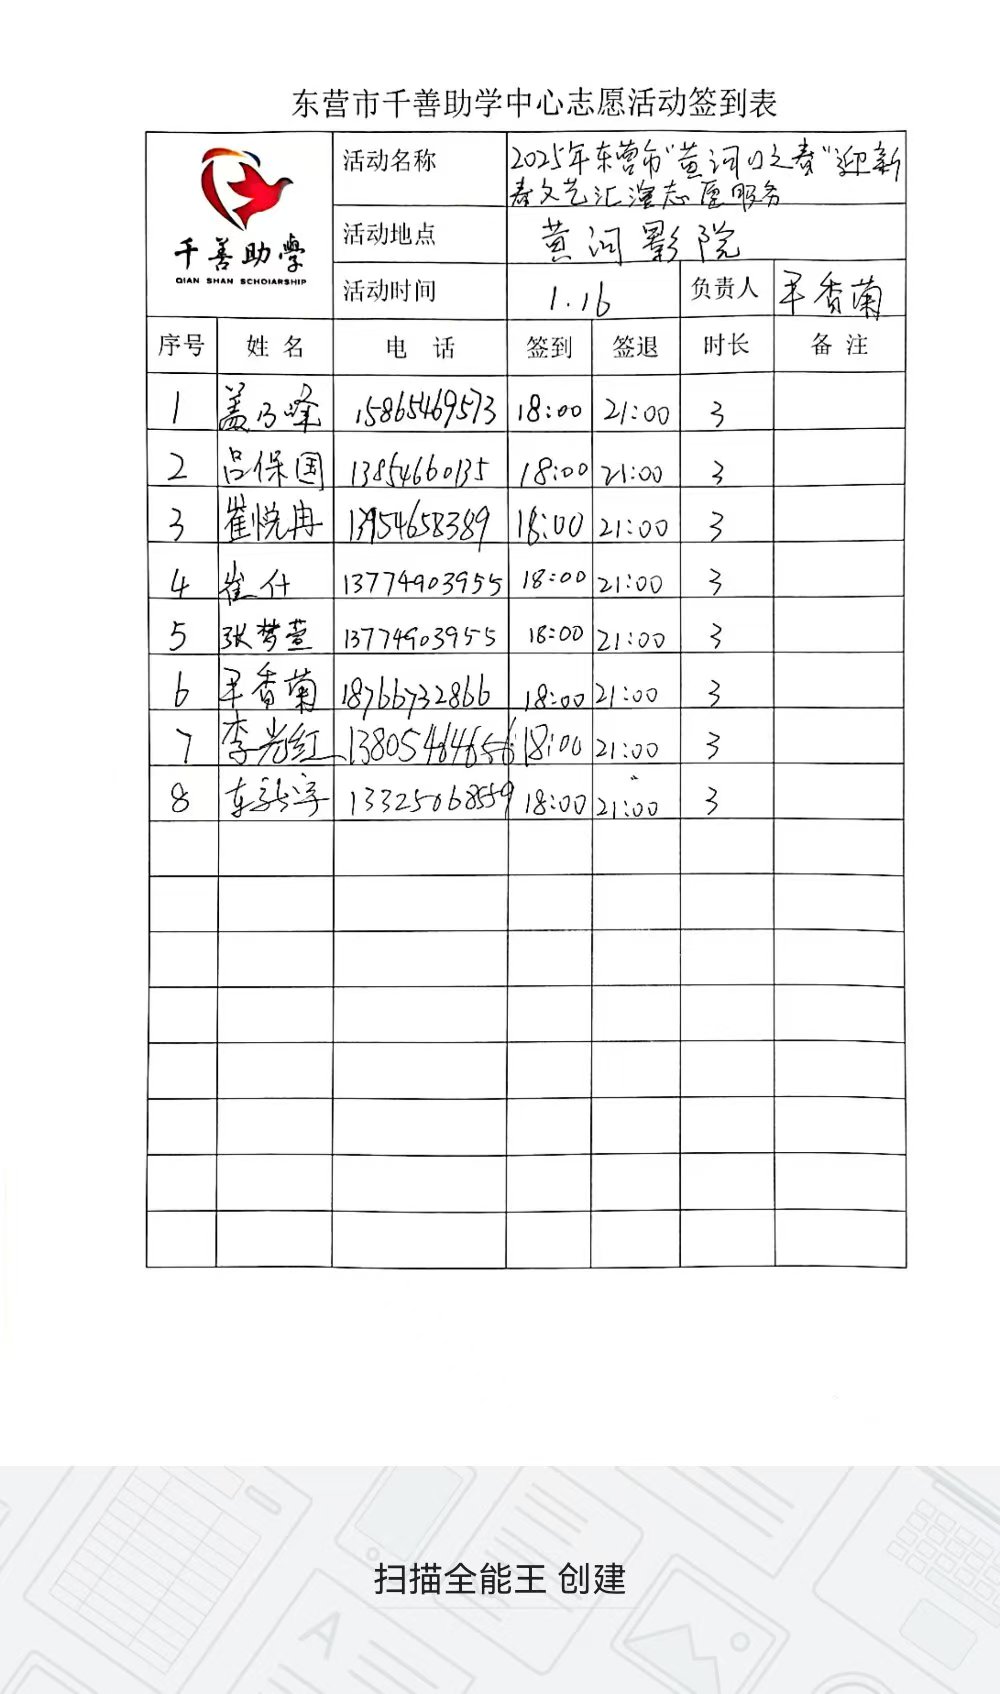 东营市千善助学中心志愿活动签到表
千善助學
QIAN SHAN SCHOIARSHIP
活动名称 2025年东营市"黄河口之春"迎新
春文艺汇演志愿服务
活动地点 黄河影院
活动时间 1.16 负责人 平香菊
序号 姓名 电话 签到 签退 时长 备注
1 盖乃峰 15865469573 18:00 21:00 3
2 吕保国 13854660135 18:00 21:00 3
3 崔悦冉 13954658389 18:00 21:00 3
4 崔什 13774903955 18:00 21:00 3
5 张梦萱 13774903955 18:00 21:00 3
6 平香菊 18766732866 18:00 21:00 3
7 李光红 13805464656 18:00 21:00 3
8 13325068559 18:00 21:00 3
扫描全能王 创建